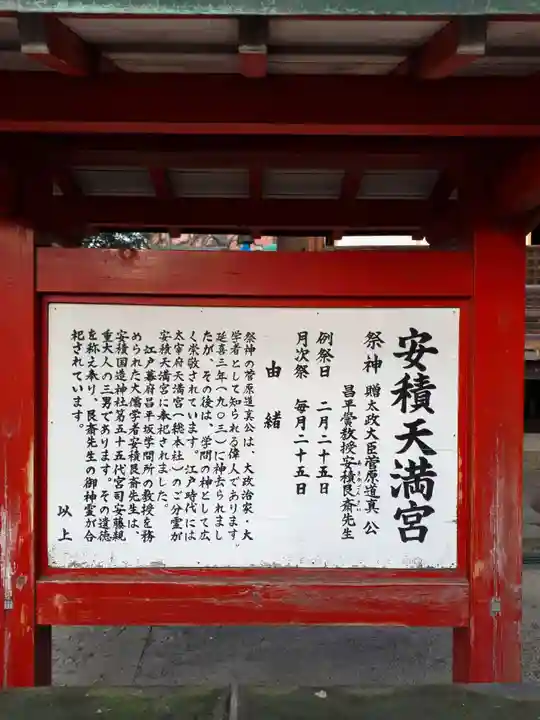 安積天満宮
祭神 贈太政大臣菅原道真 公
昌平黌教授安積艮斎先生
例祭日 二月二十五日
月次祭 毎月二十五日
由緒
祭神の菅原道真公は、大政治家・大
学者として知られる偉人であります。
延喜三年(九〇三)に神去られまし
たが、その後は、学問の神として広
く崇敬されています。江戸時代には
太宰府天満宮(総本社)のご分霊が
安積天満宮に奉祀されました。
江戸幕府昌平坂学問所の教授を務
められた大儒学者安積艮斎先生は、
安積国造神社第五十五代宮司安藤親
重大人の三男であります。その道徳
を称え奉り、艮斎先生の御神霊が合
祀されています。
以上